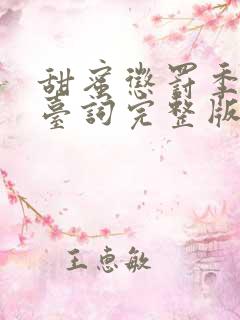 甜蜜懲罰季
臺詞完整版
王惠敏